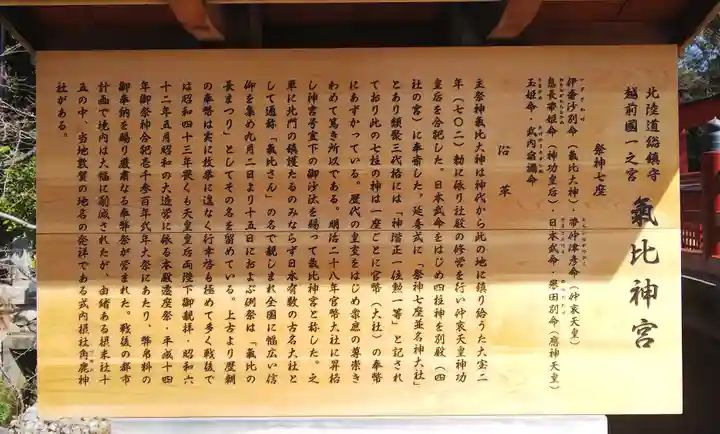 北陸道総鎮守
越前國一之宮
氣比神宮
祭神七座
伊奢沙別命（氣比大神）・帶仲津彦命（仲哀天皇）
息長帶姫命（神功皇后）・日本武命・譽田別命（應神天皇）
玉姫命・武内宿禰命
沿革
主祭神氣比大神は神代から此の地に鎮り給うた大宝二
年（七〇二）勅に依り社殿の修営を行い仲哀天皇神功
皇后を合祀した。日本武命をはじめ四柱神を別殿（四
社の宮）に奉斎した。延喜式に「祭神七座並名神大社」
とあり類聚三代格には「神階正一位勲一等」と記され
ており此の七柱の神は一座ごとに官幣（大社）の奉幣
にあずかっている。歴代の皇室をはじめ衆庶の尊崇き
わめて篤き所以である。明治二十八年官幣大社に昇格
し神宮号宣下の御沙汰を賜って氣比神宮と称した。之
單に北門の鎮護たるのみならず日本有数の古名大社と
して通称「氣比さん」の名で親しまれ全国に幅広い信
仰を集め九月二日より十五日におよぶ例祭は「氣比の
長まつり」としてその名を留めている。上古より歴朝
の奉幣は実に枚挙に遑なく行幸啓も極めて多く戦後で
は昭和四十三年畏くも天皇皇后両陛下御親拝・昭和六
十二年五月昭和の大造営に依る本殿遷座祭・平成十四
年御祭神合祀壱千参百年式年大祭にあたり、幣帛料の
御奉納を賜り厳粛なる奉幣祭が営まれた。戦後の都市
計画で境内は大幅に削減されたが、由緒ある摂末社十
五の中、当地敦賀の地名の発祥である式内摂社角鹿神
社がある。